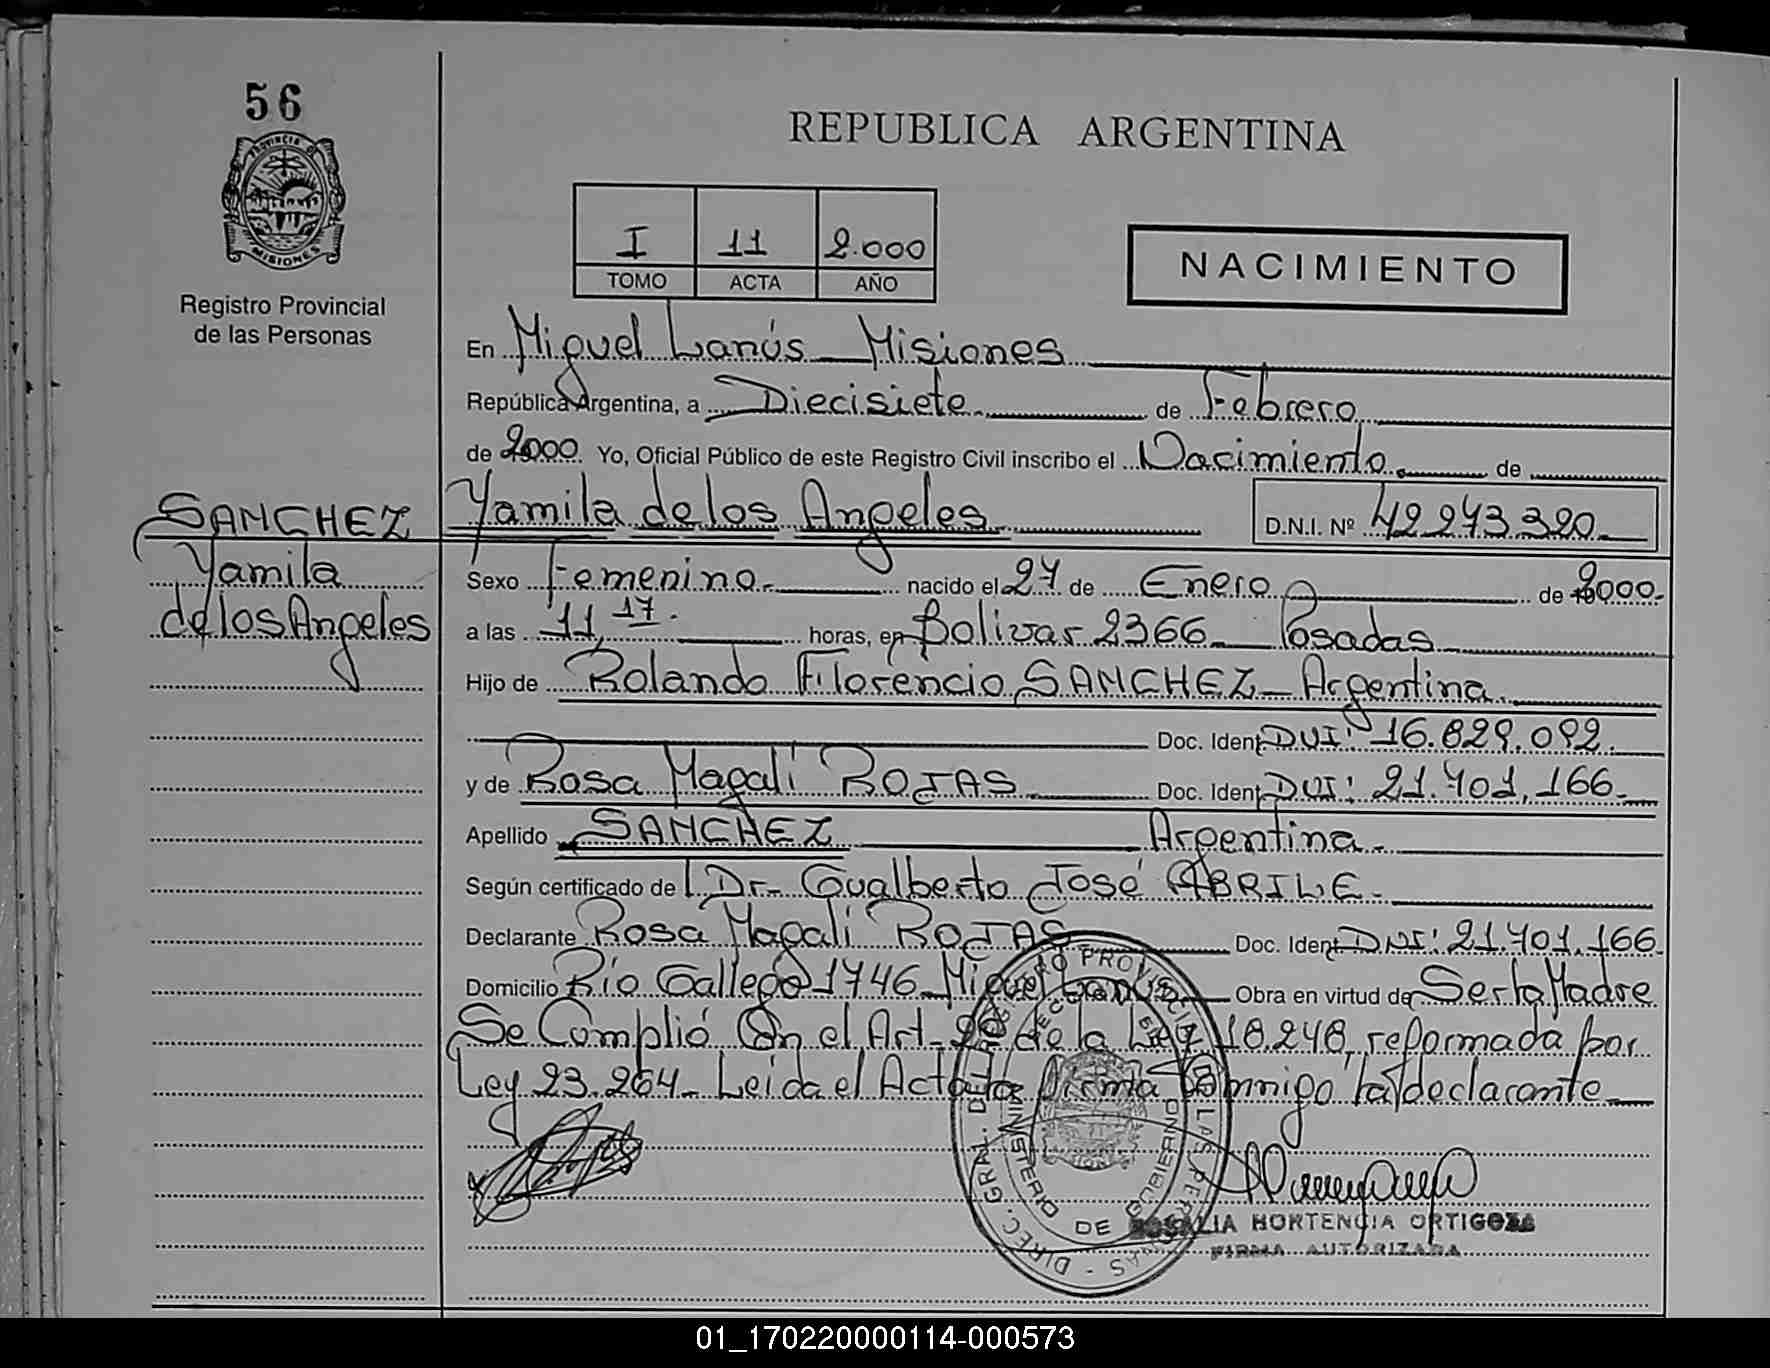 56
PROVINCIA DE
MISIONES
Registro Provincial
de las Personas
REPUBLICA ARGENTINA
I 11 2.000
TOMO ACTA AÑO
NACIMIENTO
En Miguel Lanús - Misiones
República Argentina, a Diecisiete de Febrero
de 2000 Yo, Oficial Público de este Registro Civil inscribo el Nacimiento de
SANCHEZ
Yamila
de los Angeles
Yamila de los Angeles D.N.I. Nº 42.273.320
Sexo Femenino.- nacido el 27 de Enero de 2000.-
a las 11,17.- horas, en Bolivar 2366 - Posadas
Hijo de Rolando Florencio SANCHEZ - Argentina
Doc. Ident. DNI: 16.829.092.-
y de Rosa Magalí ROJAS Doc. Ident. DNI: 21.701.166.-
Apellido SANCHEZ Argentina.-
Según certificado del Dr. Gualberto José ABRILE.-
Declarante Rosa Magali ROJAS Doc. Ident. DNI: 21.701.166.
Domicilio Río Gallego 1746 Miguel Lanús Obra en virtud de Ser la Madre
Se Complió Con el Art. 20 de la Ley 18.248, reformada por
Ley 23.264.- Leída el Acta la firma Conmigo la declarante
DIREC. GRAL. DEL REGISTRO PROVINCIAL DE LAS PERSONAS
MINISTERIO DE GOBIERNO
ROSALIA HORTENCIA ORTIGOZA
FIRMA AUTORIZADA
01_170220000114-000573